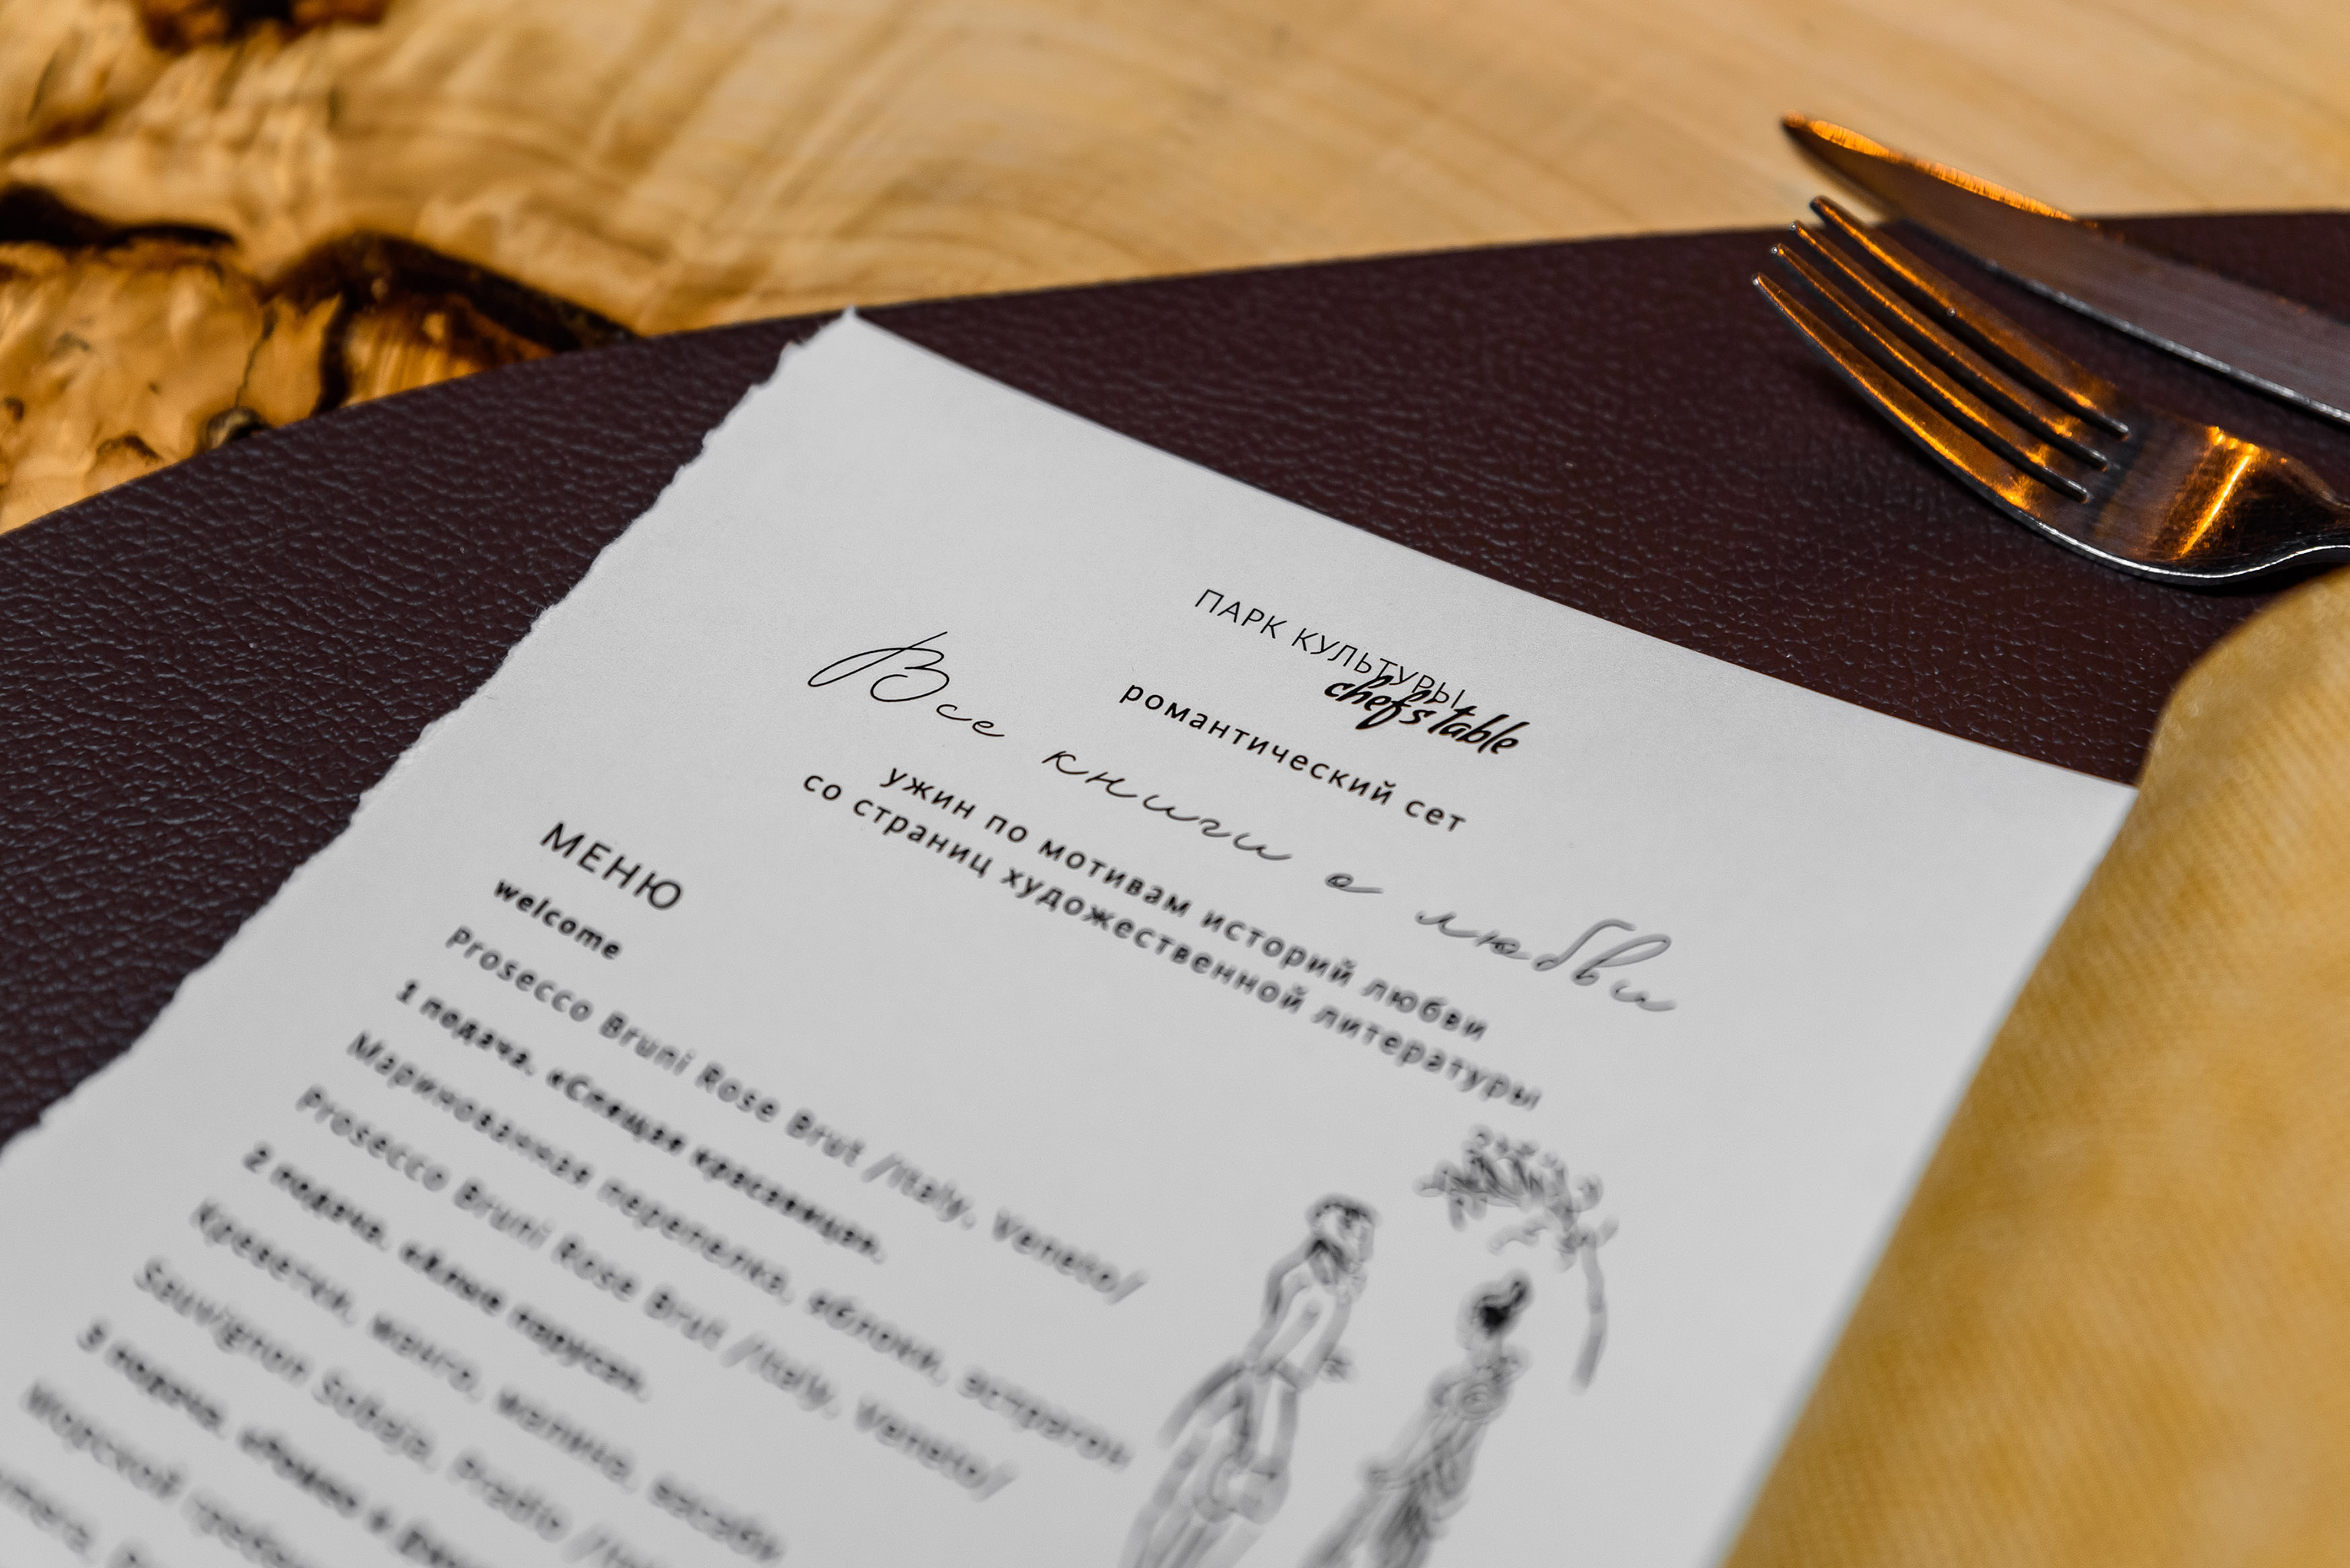 ПАРК КУЛЬТУРЫ
chefs table
романтический сет
Все книги о любви
ужин по мотивам историй любви
со страниц художественной литературы
МЕНЮ
welcome
Prosecco Bruni Rose Brut /Italy, Veneto/
1 подача, «Спящая красавица».
Маринованная перепелка, яблоки, эстрагон
Prosecco Bruni Rose Brut /Italy, Veneto/
2 подача, «Алые паруса».
Креветки, манго, васаби
Sauvignon
3 подача, «Ромео и
Морской гребешок